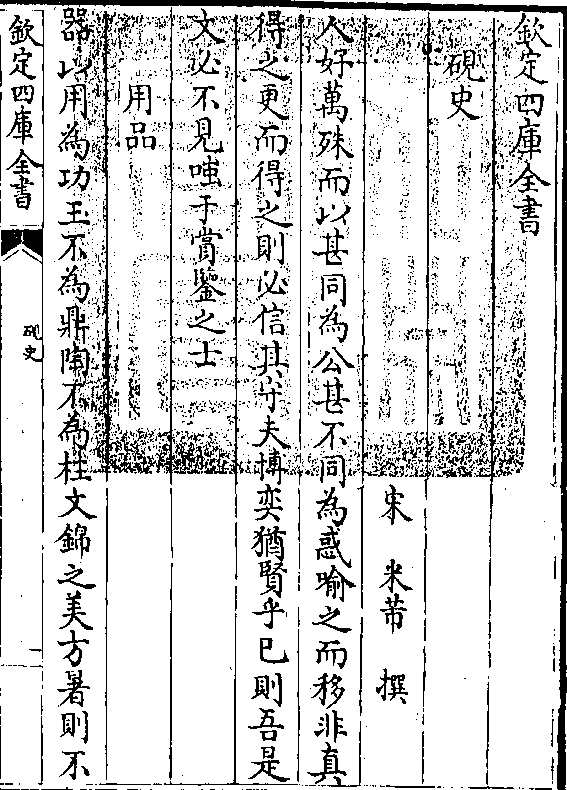 欽定四庫全書
硯史
宋 米芾 撰
人好萬殊而以甚同為公甚不同為惑喻之而移非真
得之更而得之則必信其守夫博奕猶賢乎已則吾是
文必不見嗤于賞鑒之士
用品
器以用為功玉不為鼎陶不為柱文錦之美方暑則不
欽定四庫全書
硯史
一